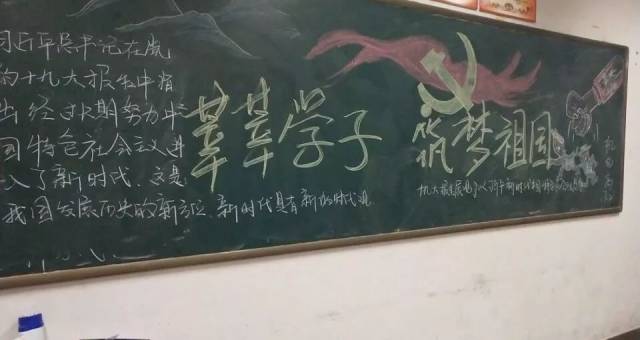 习近平总书记在党
的十九大报告中指
出 经过长期努力 中
国特色社会主义进
入了新时代. 这是
我国发展历史的新方位. 新时代具有新
莘莘学子 筑梦祖国